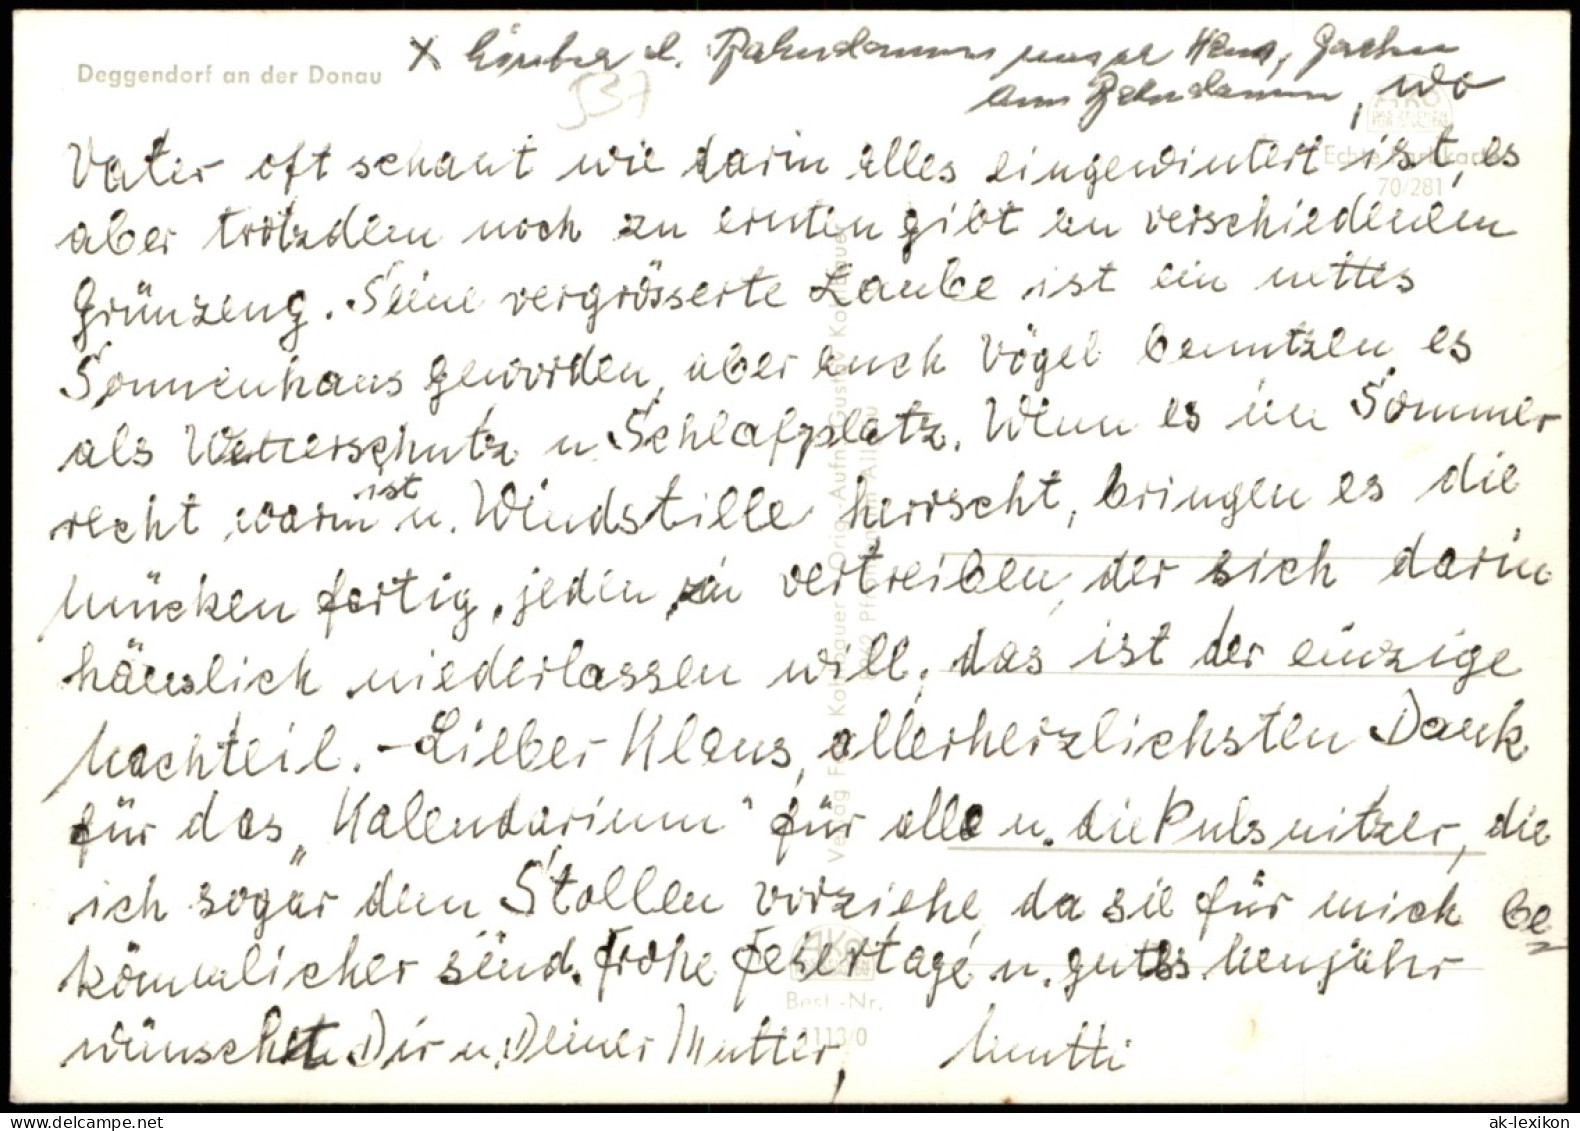 Deggendorf an der Donau
X d. Bahndamm unser Haus, Garten
am Bahndamm, wo
537
Echte
70/281
Vater oft schaut wie darin alles eingewintert ist, es
aber trotzdem noch zu ernten gibt an verschiedenem
Grünzeug. Seine vergrösserte Laube ist ein nettes
Sonnenhaus geworden, aber auch Vögel benutzen es
als Wetterschutz u. Schlafplatz. Wenn es im Sommer
recht warm ist u. Windstille herrscht, bringen es die
Mücken fertig, jeden zu vertreiben, der sich darin
häuslich niederlassen will, das ist der einzige
Nachteil. – Lieber Klaus, allerherzlichsten Dank
für das „Kalendarium“ für alle u. die Pulsnitzer, die
ich sogar dem Stollen vorziehe, da sie für mich be
kömmlicher sind. Frohe Feiertage u. gutes Neujahr
wünscht Dir u. Deiner Mutter, Mutti
Best.-Nr.
ak-lexikon